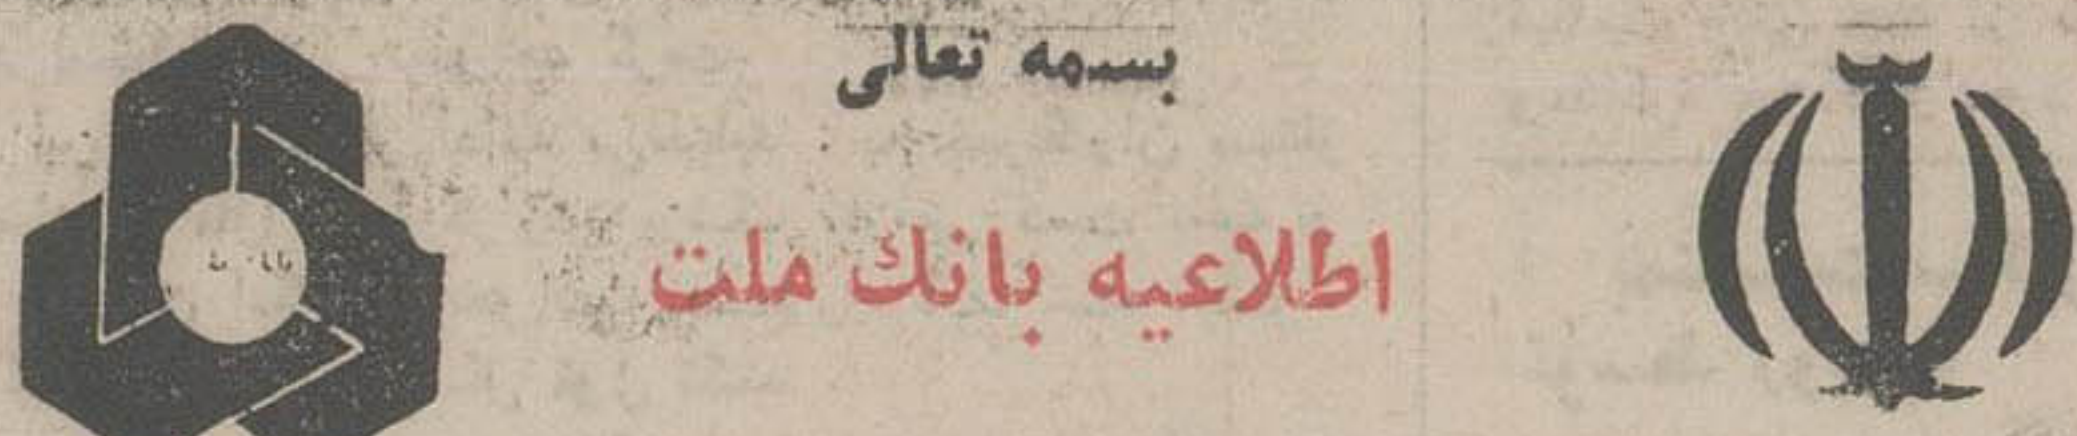 بسمه تعالی
اطلاعیه بانك ملت